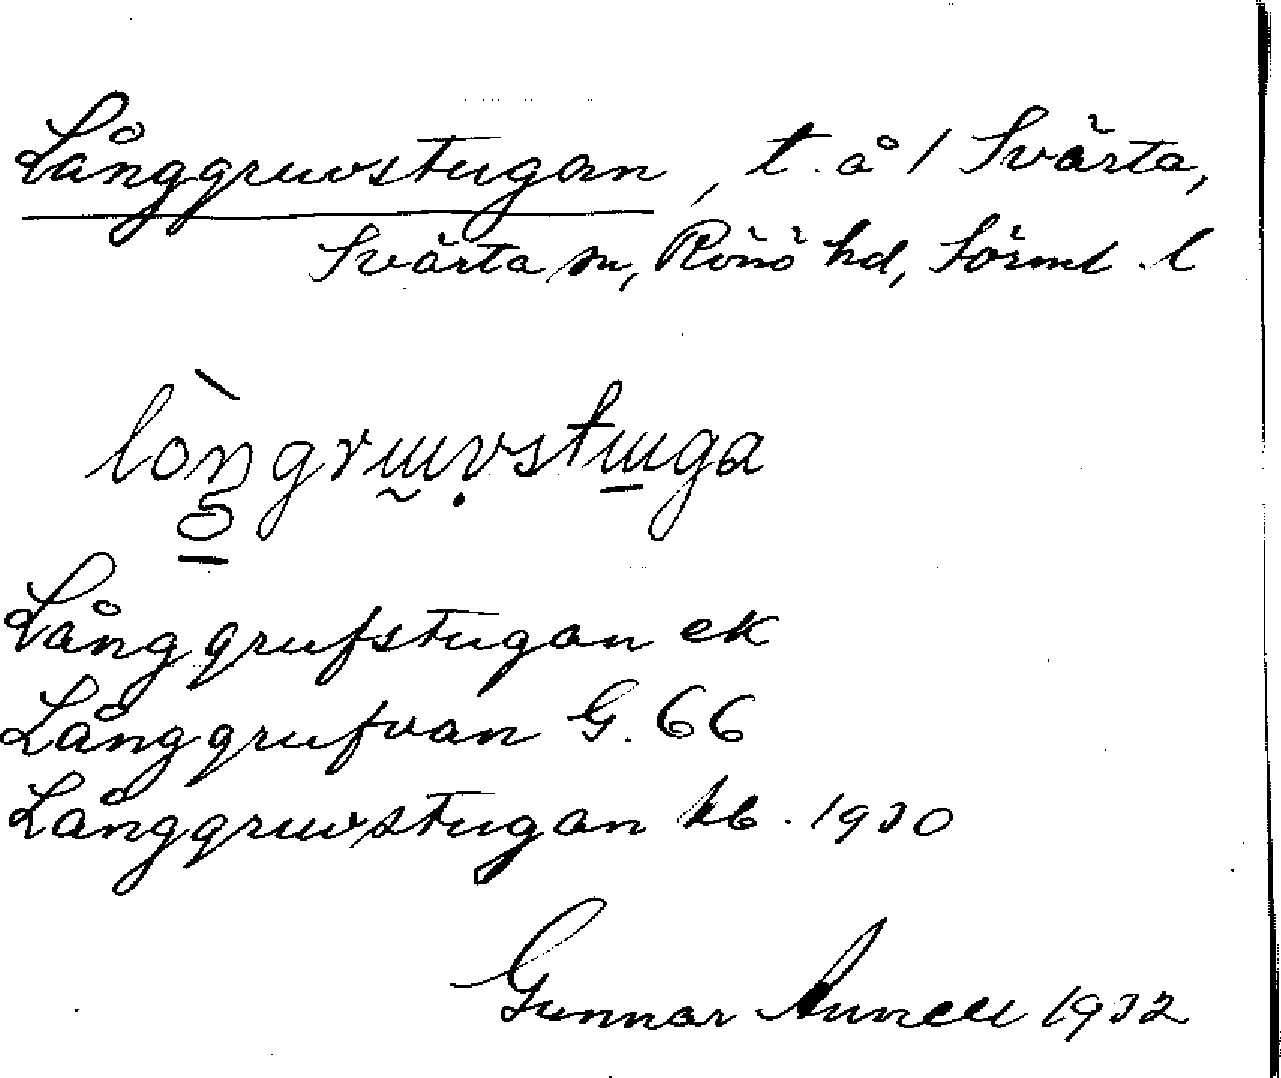 Långgruvstugan, t. å 1 Svärta,
Svärta sn, Rönö hd, Sörml. l
Långgrufstugan ek
Långgrufvan G. 66
Långgruvstugan kb. 1930
Gunnar 1932